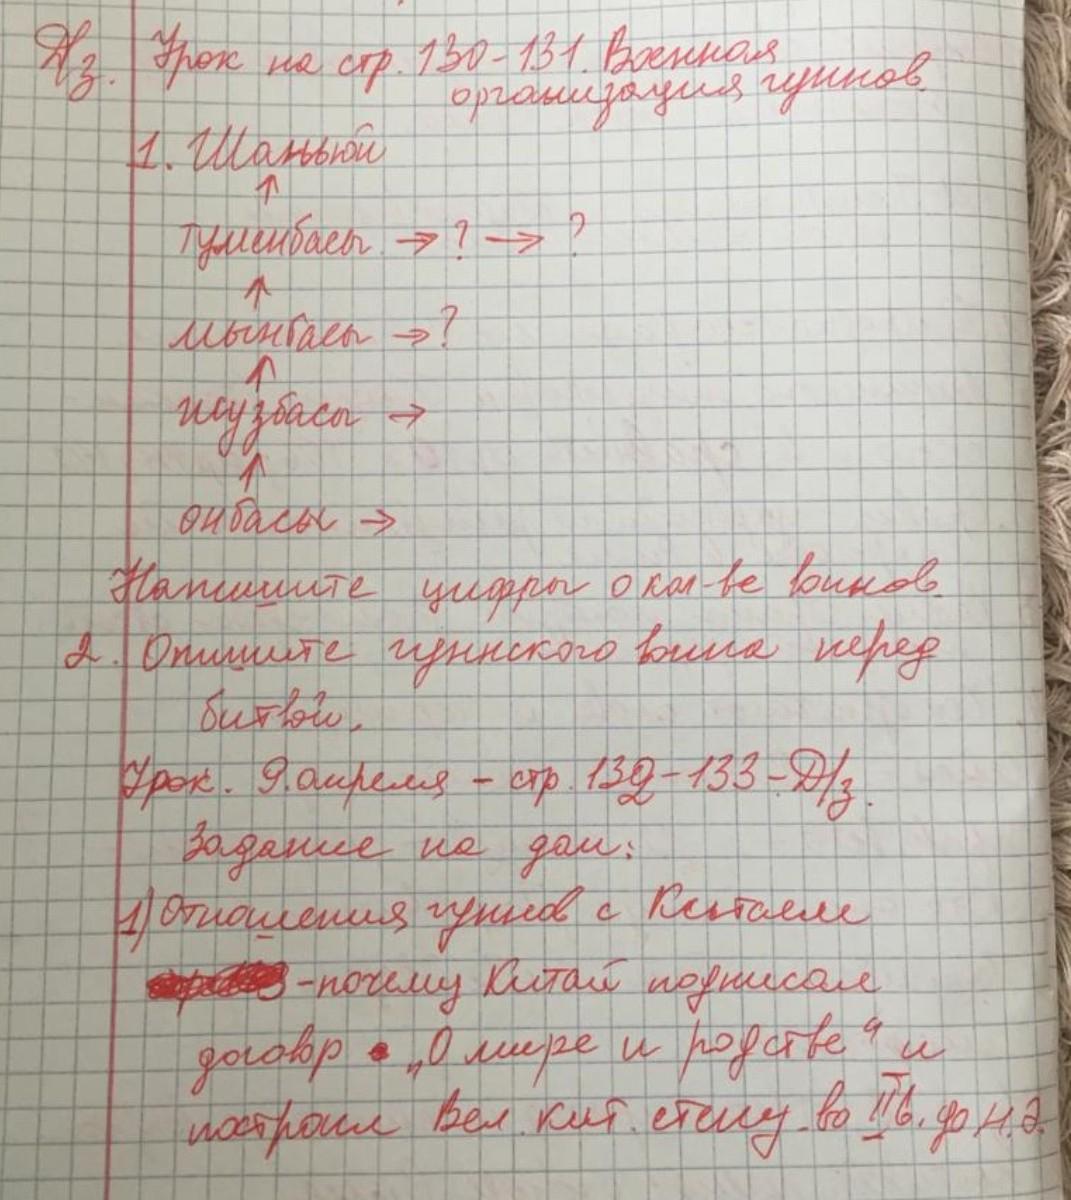 Д/з. Урок на стр. 130-131. Военная
организация гуннов.
1. Шаньюй
↑
туменбасы → ? → ?
↑
мынбасы → ?
↑
жузбасы →
↑
онбасы →
Напишите цифры о кол-ве воинов.
2. Опишите гуннского воина перед
битвой.
Урок. 9. апреля - стр. 132-133 - Д/з.
Задание на дом:
1) Отношения гуннов с Китаем
- почему Китай подписал
договор „О мире и родстве" и
построил Вел. кит. стену во II в. до н.э.